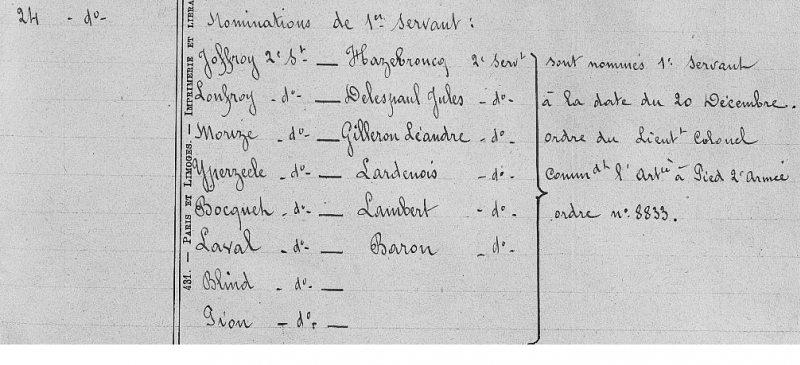 24 - do- Nominations de 1er Servant :
Joffroy 2e St — Hazebroucq 2e Servt sont nommés 1er Servant
Lonfroy - do- — Delespaul Jules - do- à la date du 20 Décembre.
Morize - do- — Gilleron Léandre - do- ordre du Lieutt Colonel
Yperzeele - do- — Lardenois - do- Commdt l'Artie à Pied 2e Armée
Bocquet - do- — Lambert - do- ordre no 8833.
Laval - do- — Baron - do-
Blind - do- —
Pion - do- —
431. — PARIS ET LIMOGES. — IMPRIMERIE ET LIBRA